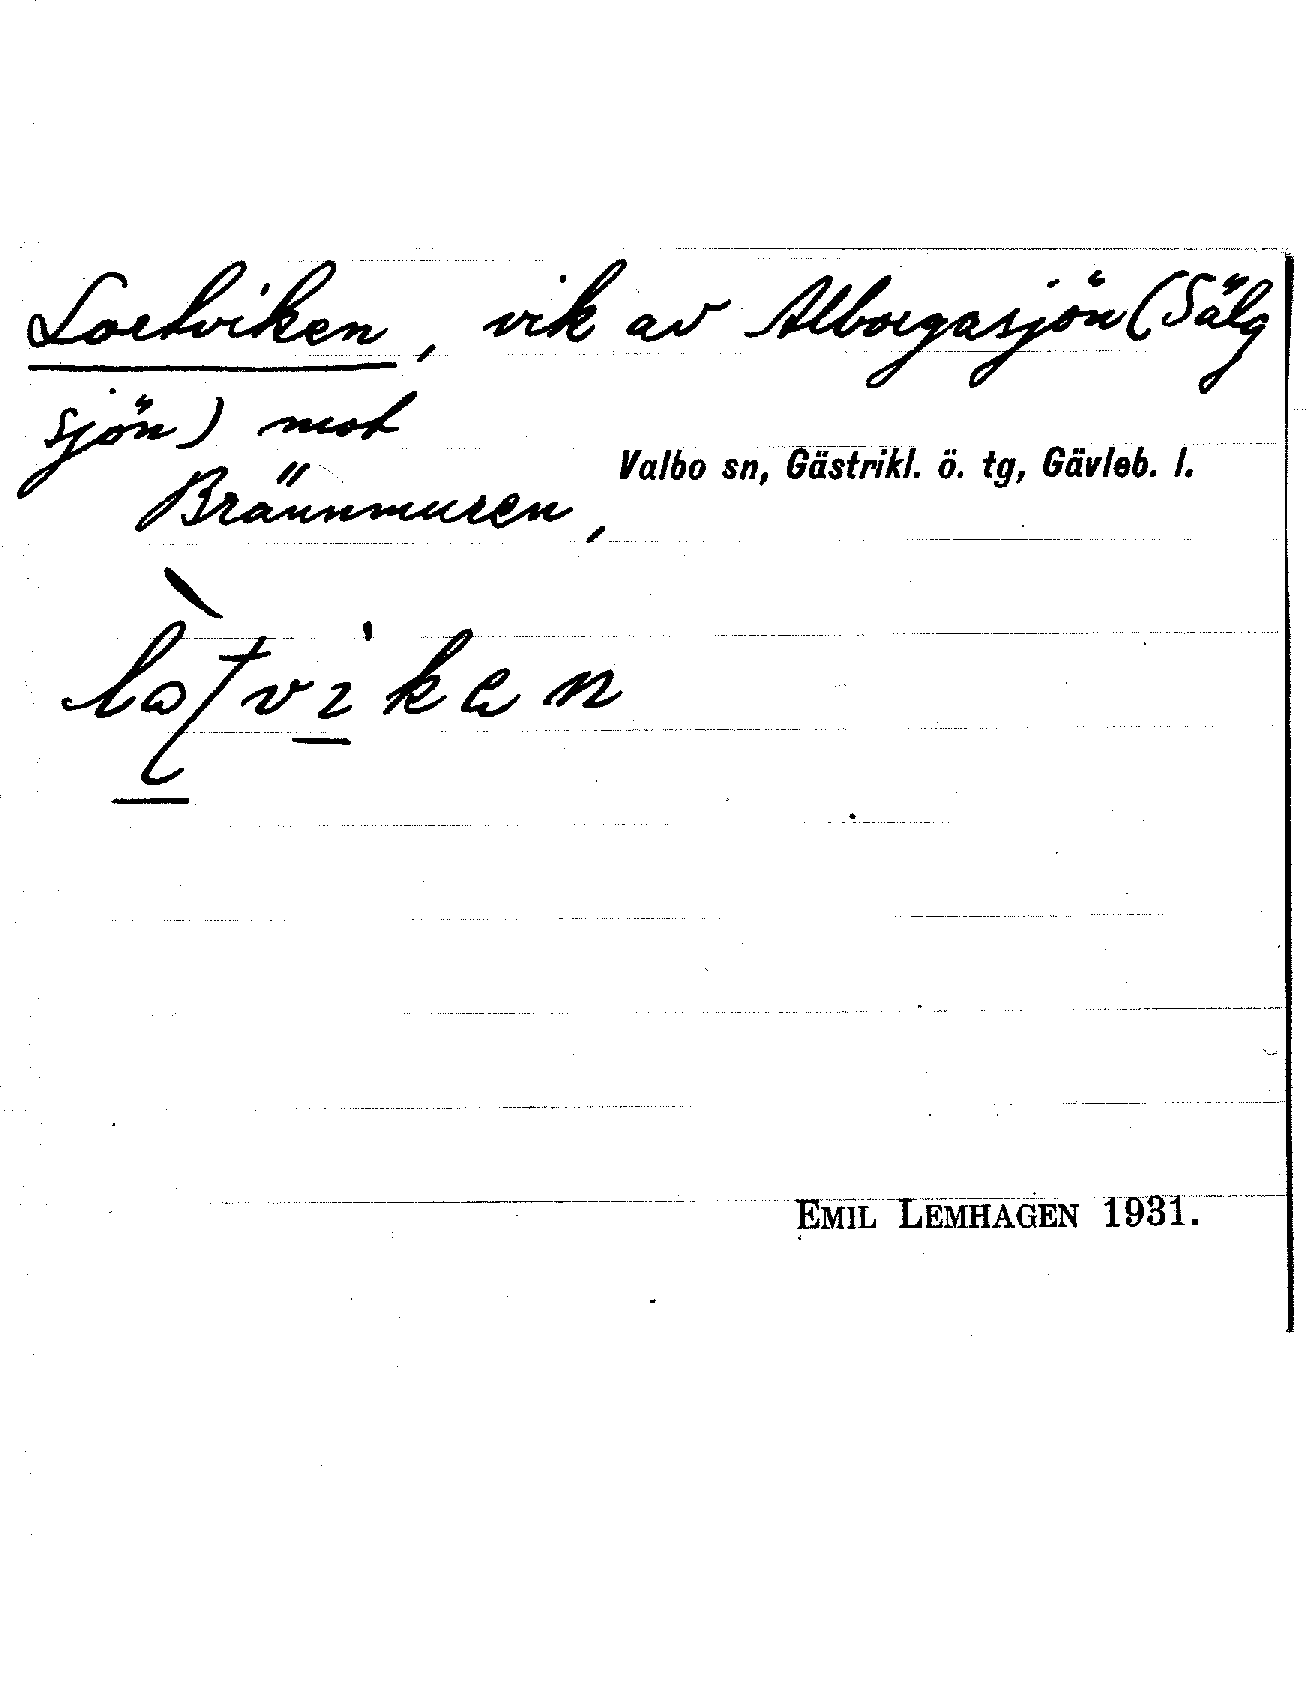 Lortviken, vik av Alborgasjön (Sälg
sjön) mot
Valbo sn, Gästrikl. ö. tg, Gävleb. l.
Brännmuren,
EMIL LEMHAGEN 1931.